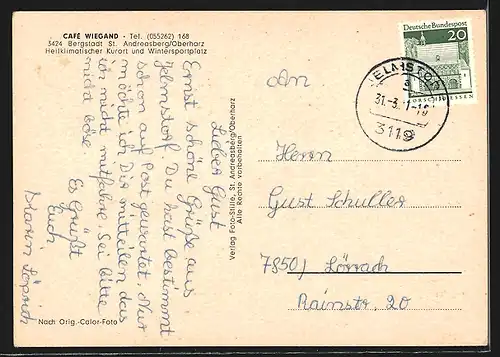 CAFÉ WIEGAND - Tel. (055262) 168
3424 Bergstadt St. Andreasberg/Oberharz
Heilklimatischer Kurort und Wintersportplatz
Lieber Gust
Ernst schöne Grüße aus
Jelmstorf. Du hast bestimmt
schon auf Post gewartet. Nur
möchte ich Dir mitteilen das
ich nicht mitfahre. Sei Bitte
nicht böse
Es Grüßt
Euch
Nach Orig.-Color-Foto
Verlag Foto-Stille, St. Andreasberg/Oberharz
Alle Rechte vorbehalten
Deutsche Bundespost
20
LORSCH/HESSEN
JELMSTORF
a
31.-3.
3119
An
Herrn
Gust Schuller
7850/ Lörrach
Rainstr. 20